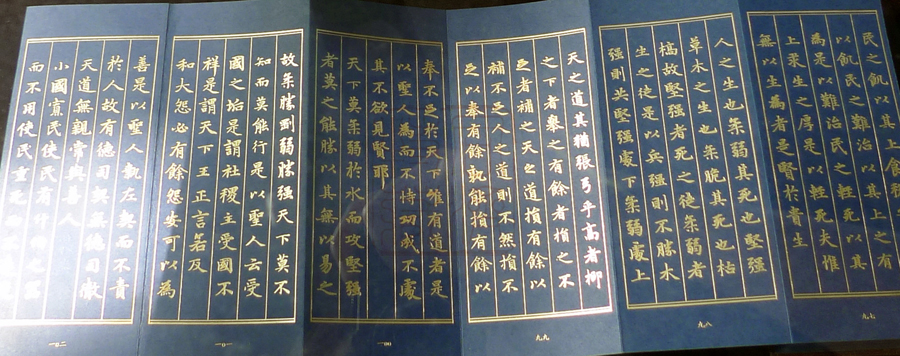 民之飢以其上食稅
以飢民之難治以其上之有
為是以難治民之輕死以其
上求生之厚是以輕死夫惟
無以生為者是賢於貴生
九七
人之生也柔弱其死也堅强
草木之生也柔脆其死也枯
槁故堅强者死之徒柔弱者
生之徒是以兵强則不勝木
强則共堅强處下柔弱處上
九八
天之道其猶張弓乎高者抑
之下者舉之有餘者損之不
足者補之天之道損有餘以
補不足人之道則不然損不
足以奉有餘孰能損有餘以
九九
奉不足於天下惟有道者是
以聖人為而不恃功成不處
其不欲見賢耶
天下莫柔弱於水而攻堅强
者莫之能勝以其無以易之
一〇〇
故柔勝剛弱勝强天下莫不
知而莫能行是以聖人云受
國之垢是謂社稷主受國不
祥是謂天下王正言若反
和大怨必有餘怨安可以為
一〇一
善是以聖人執左契而不責
於人故有德司契無德司徹
天道無親常與善人
小國寡民使民有什伯之器
而不用使民重死而不
一〇二